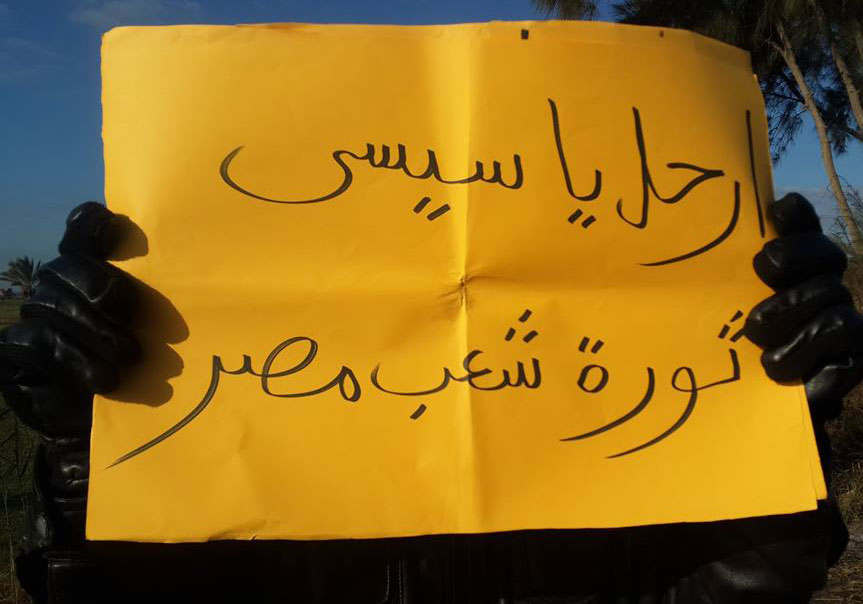 ارحل يا سيسى
ثورة شعب مصر